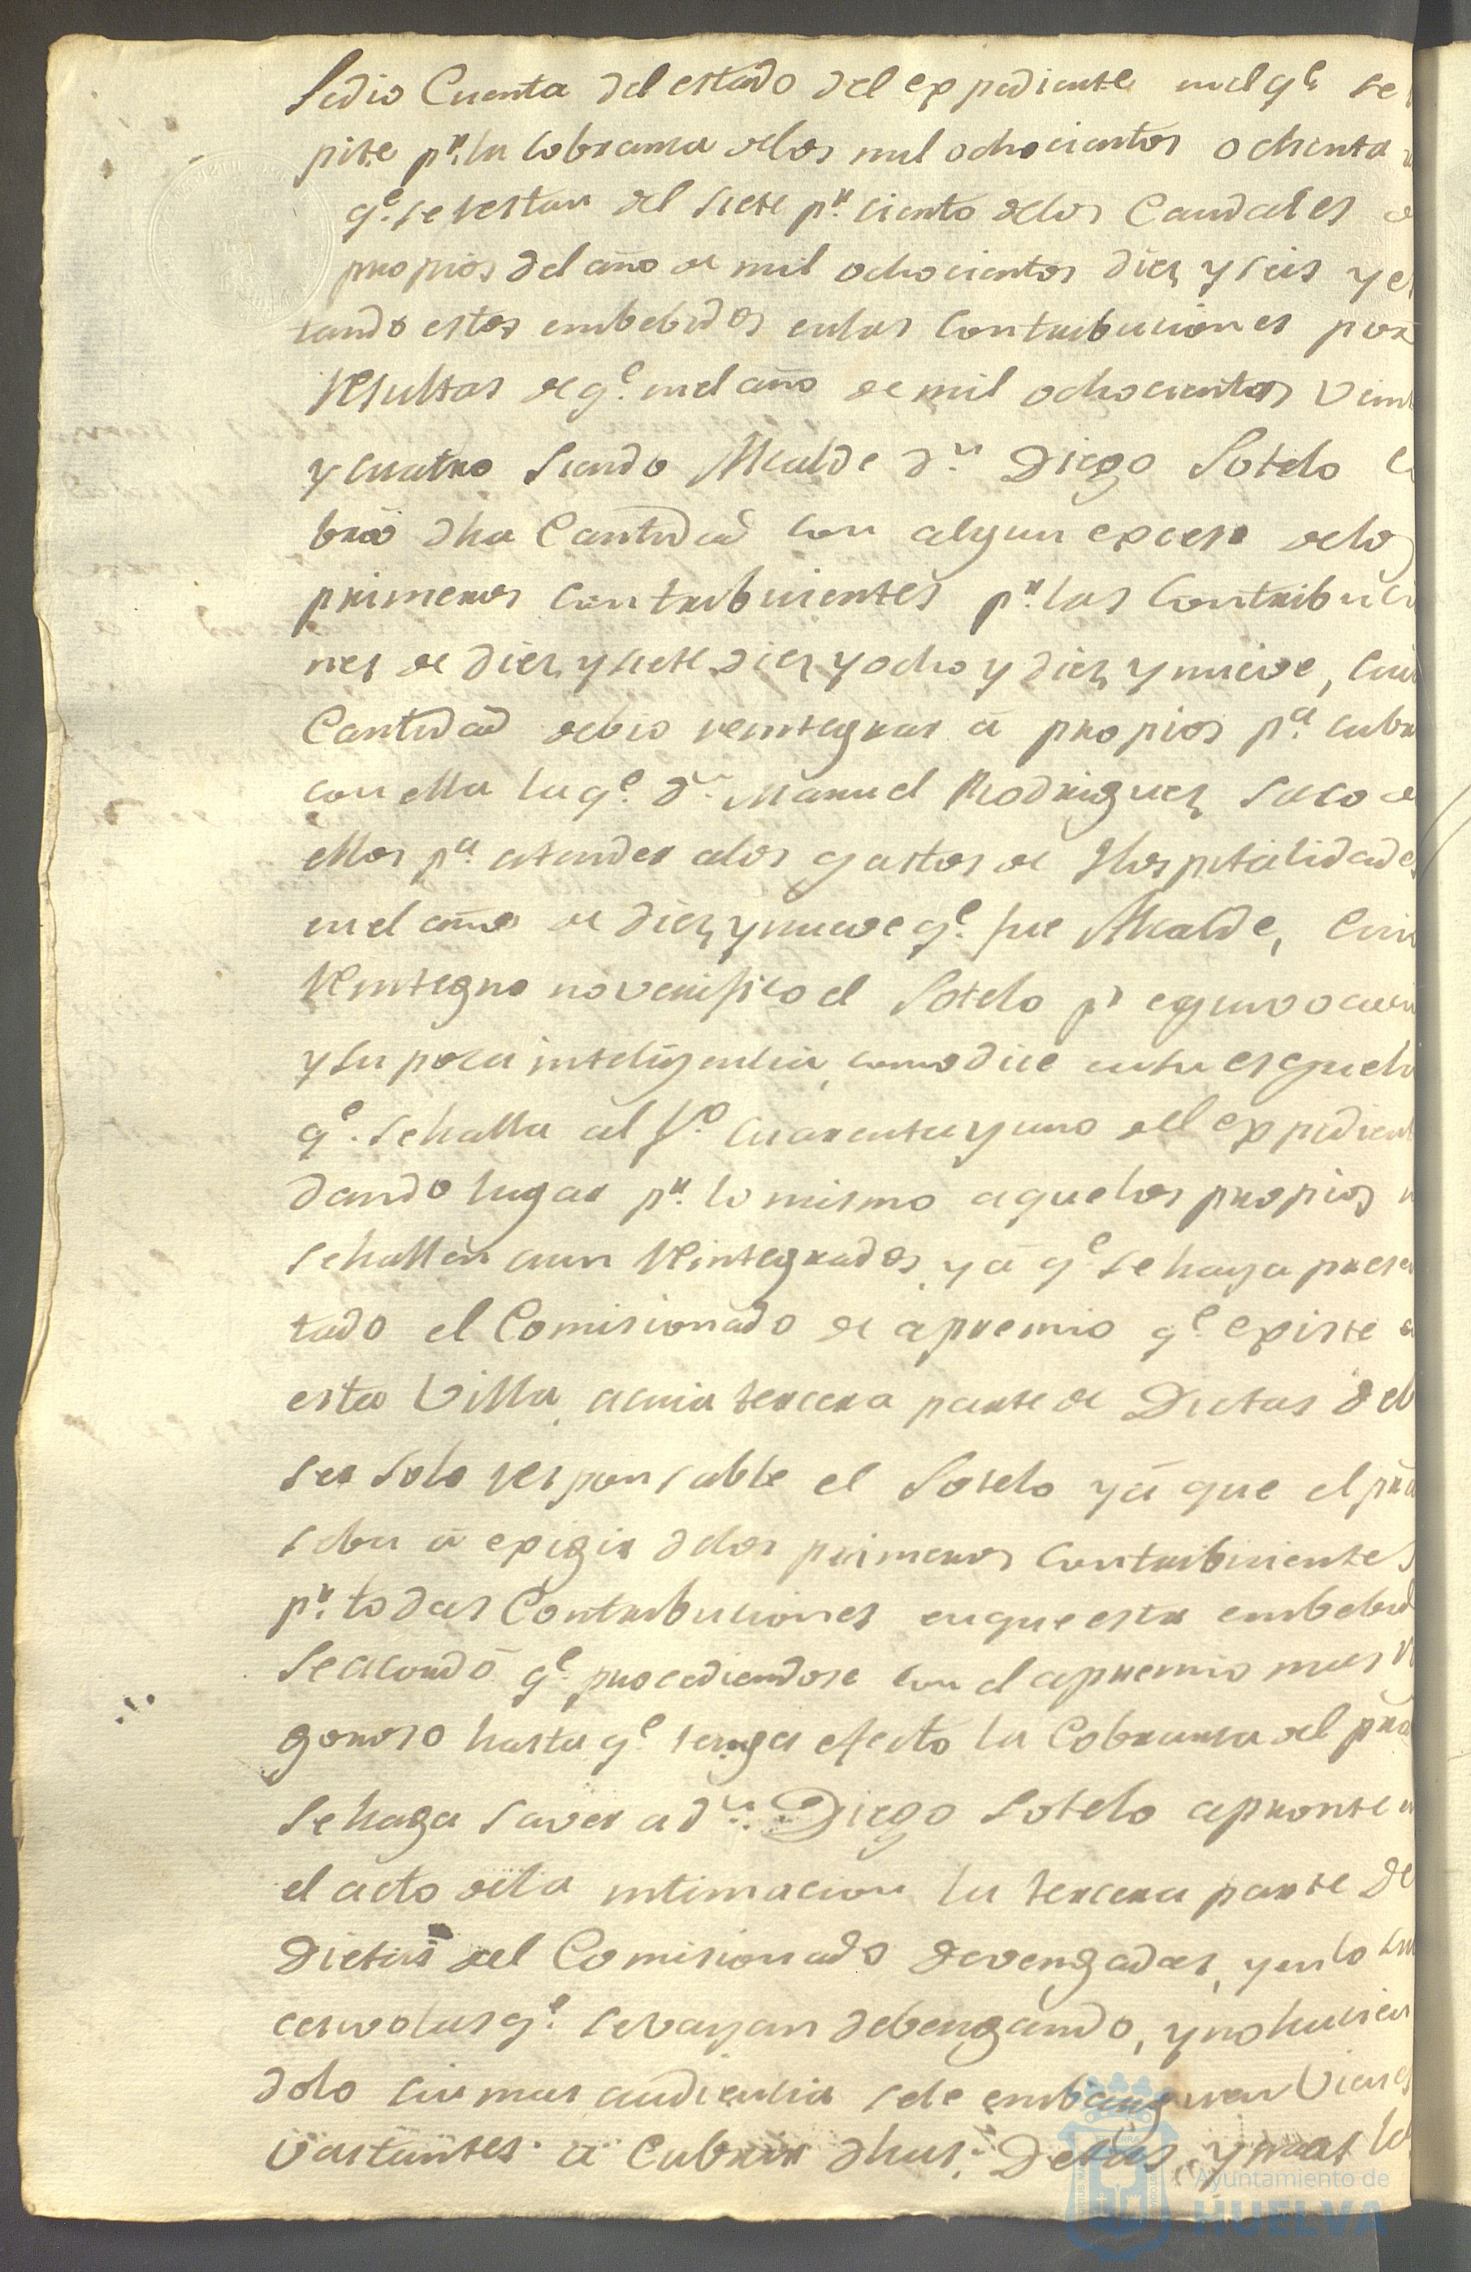 Se dio Cuenta del estado del expediente en el q.e se
pite p.r la cobranza de los mil ochocientos ochenta
q.e se restan del siete p.r ciento de los Caudales
propios del año de mil ochocientos diez y seis y es
tando estos embebidos en las Contribuciones por
resultas de q.e en el año de mil ochocientos Veint
y cuatro siendo Alcalde d.n Diego Sotelo co
bró dha Cantidad con algun exceso de los
primeros contribuientes p.r las Contribucio
nes de diez y siete diez y ocho y diez y nueve, cuia
Cantidad debio reintegrar á propios p.a cubrir
con ella la q.e d.n Manuel Rodriguez saco de
ellos p.a atender a los gastos de Hospitalidades
en el año de diez y nueve q.e fue Alcalde, cuio
reintegro no verifico el Sotelo p.r equivocaci
y su poca inteligencia, como dice en su esquela
q.e se halla al f.o cuarenta y uno del expedient
dando lugar p.r lo mismo a que los propios n
se hallen aun reintegrados, y a q.e se haya presen
tado el Comisionado de apremio q.e existe en
esta Villa, a cuia tercera parte de Dietas deb
ser solo responsable el Sotelo ya que el pral
se ba á exigir de los primeros contribuientes
p.r todas Contribuciones en que esta embebid
Se acordó q.e procediendose con el apremio mas ri
goroso hasta q.e tenga efecto la Cobranza del pral
se haga saver a d.n Diego Sotelo apronte en
el acto de la intimacion la tercera parte de
Dietas del Comisionado devengadas, y en lo su
cesivo las q.e se vayan debengando, y no hacien
dolo sin mas audiencia se le embarguen Vienes
vastantes a Cubrir dhas Dietas, y mas
Ayuntamiento de
HUELVA